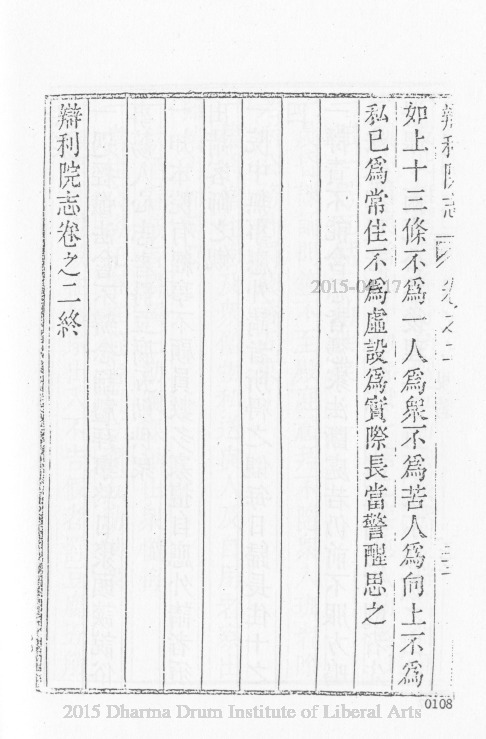 辯利院志 卷之二
如上十三條不爲一人爲衆不爲苦人爲向上不爲
私已爲常住不爲虛設爲實際長當警醒思之
辯利院志卷之二終
2015-04-17
0108
2015 Dharma Drum Institute of Liberal Arts